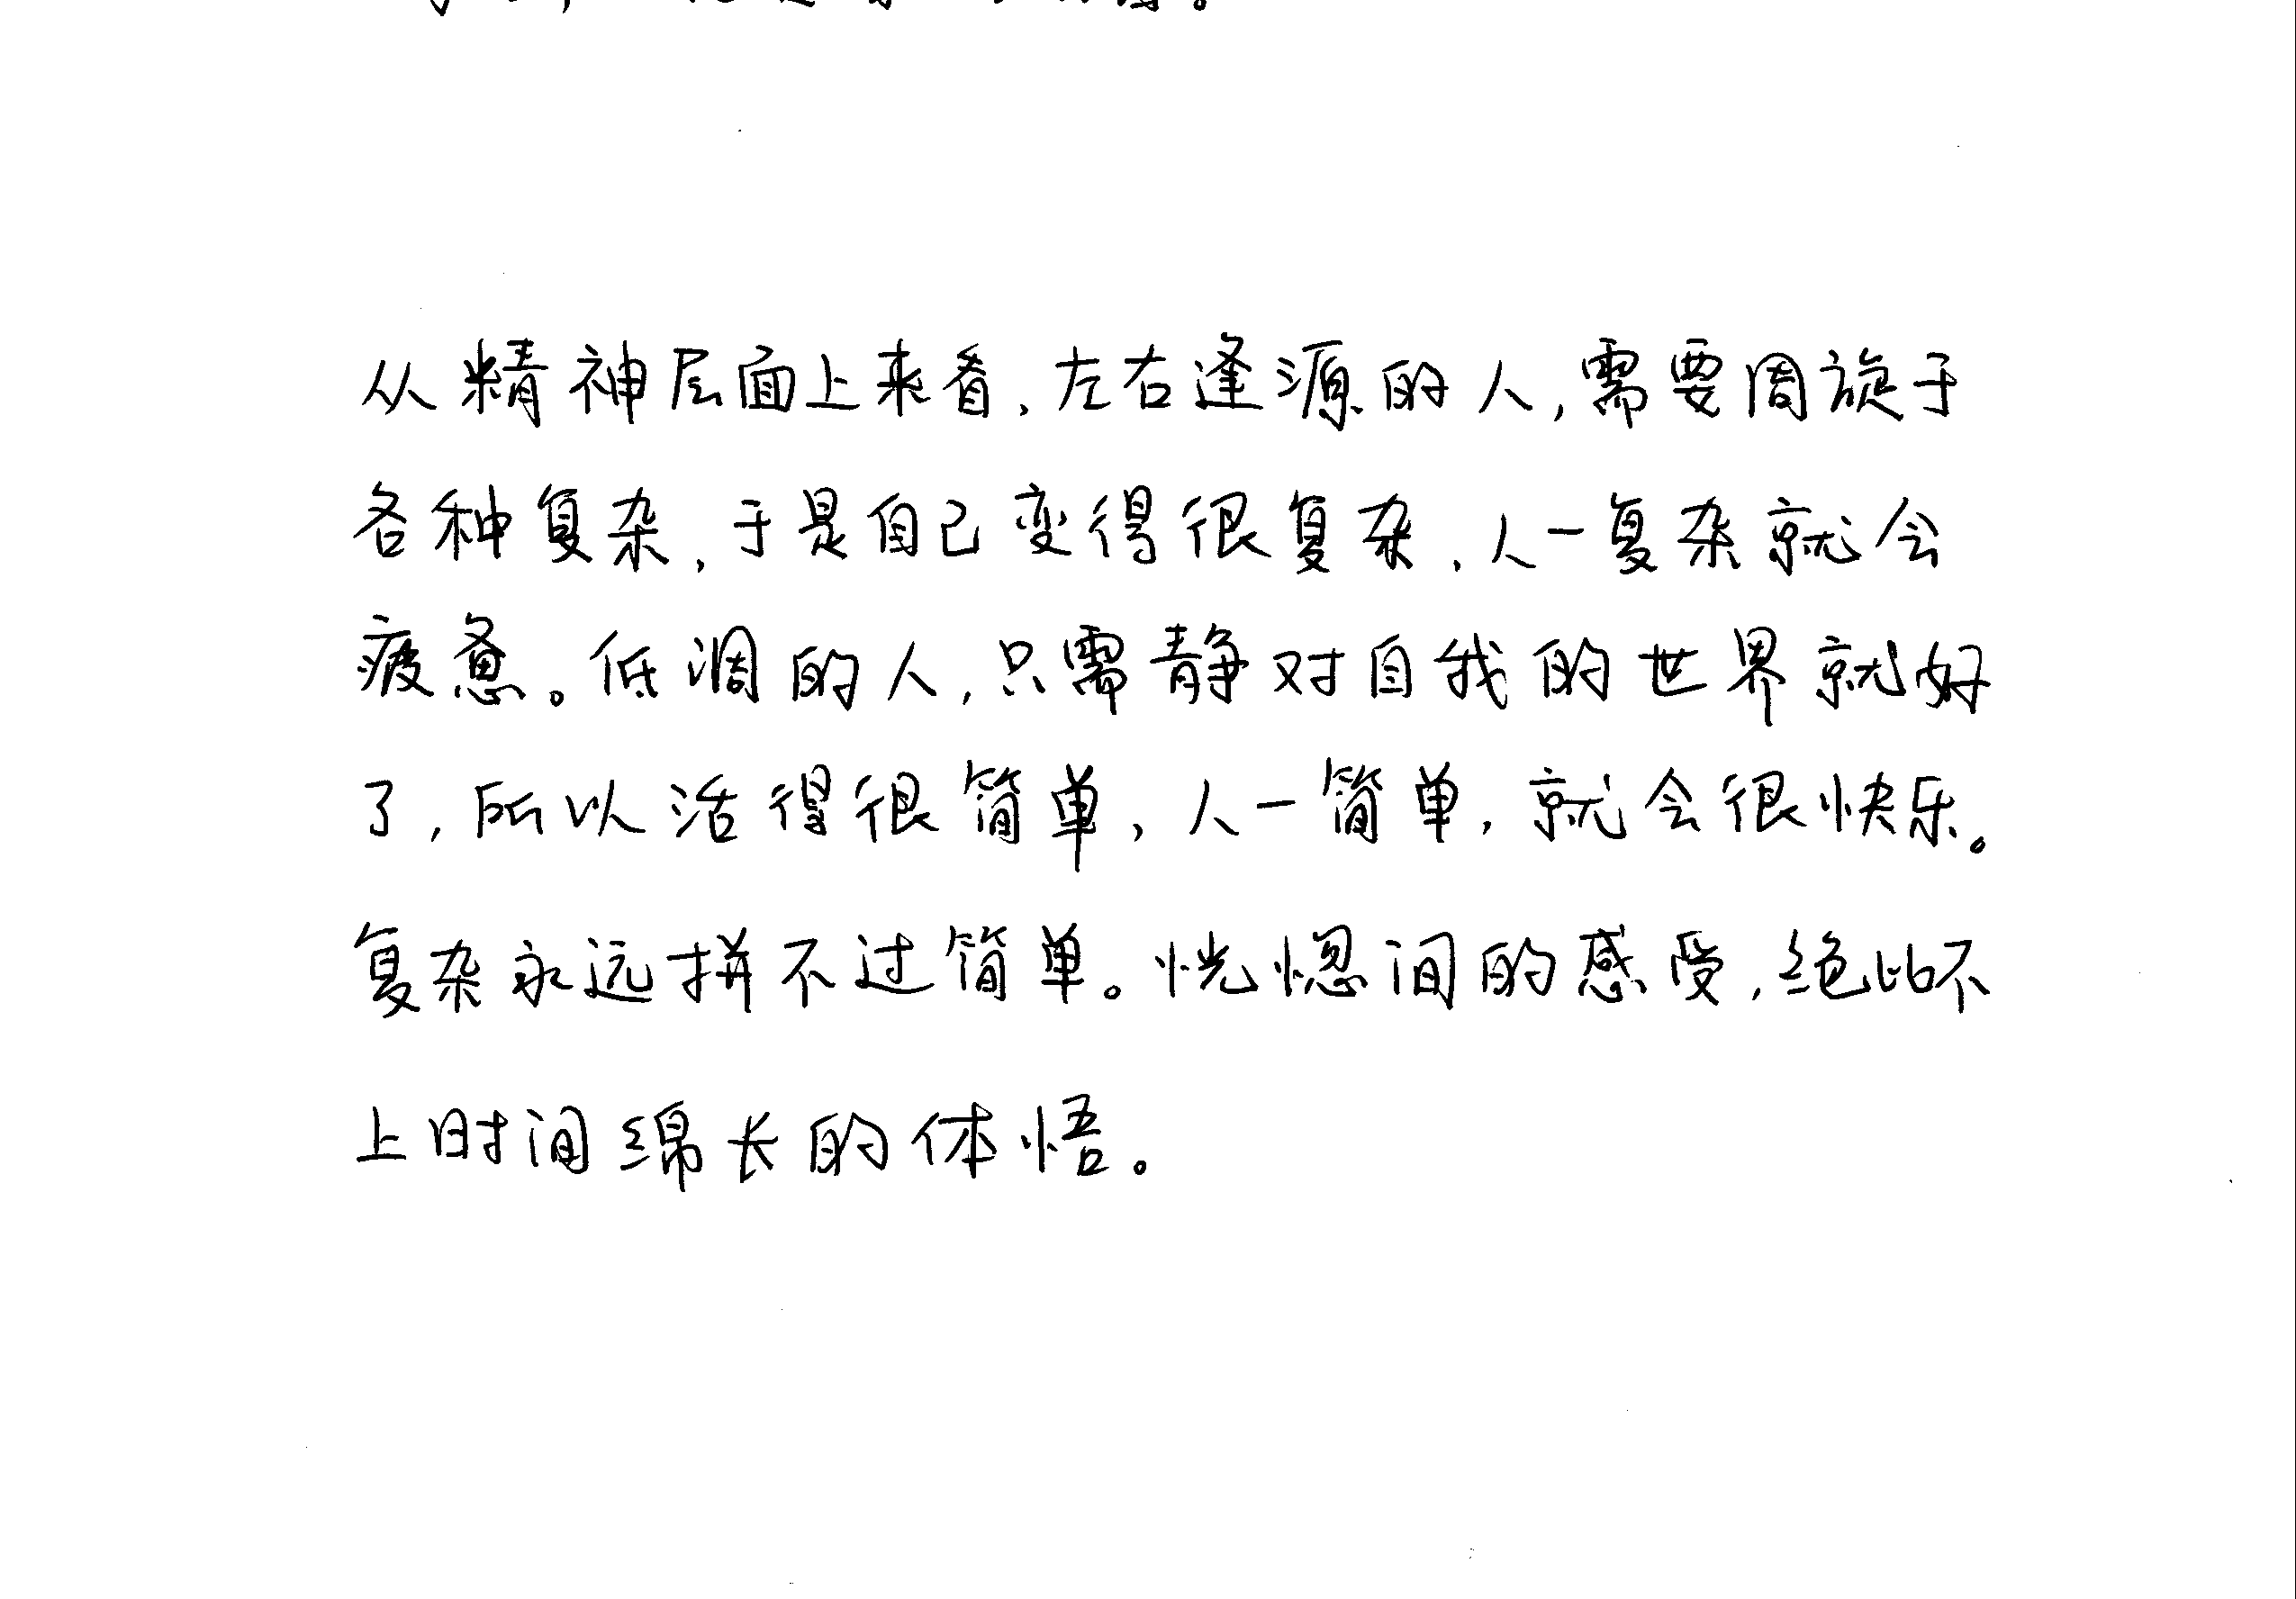 从精神层面上来看，左右逢源的人，需要周旋于
各种复杂，于是自己变得很复杂，人一复杂就会
疲惫。低调的人，只需静对自我的世界就好
了，所以活得很简单，人一简单，就会很快乐。
复杂永远拼不过简单。恍惚间的感受，绝比不
上时间绵长的体悟。